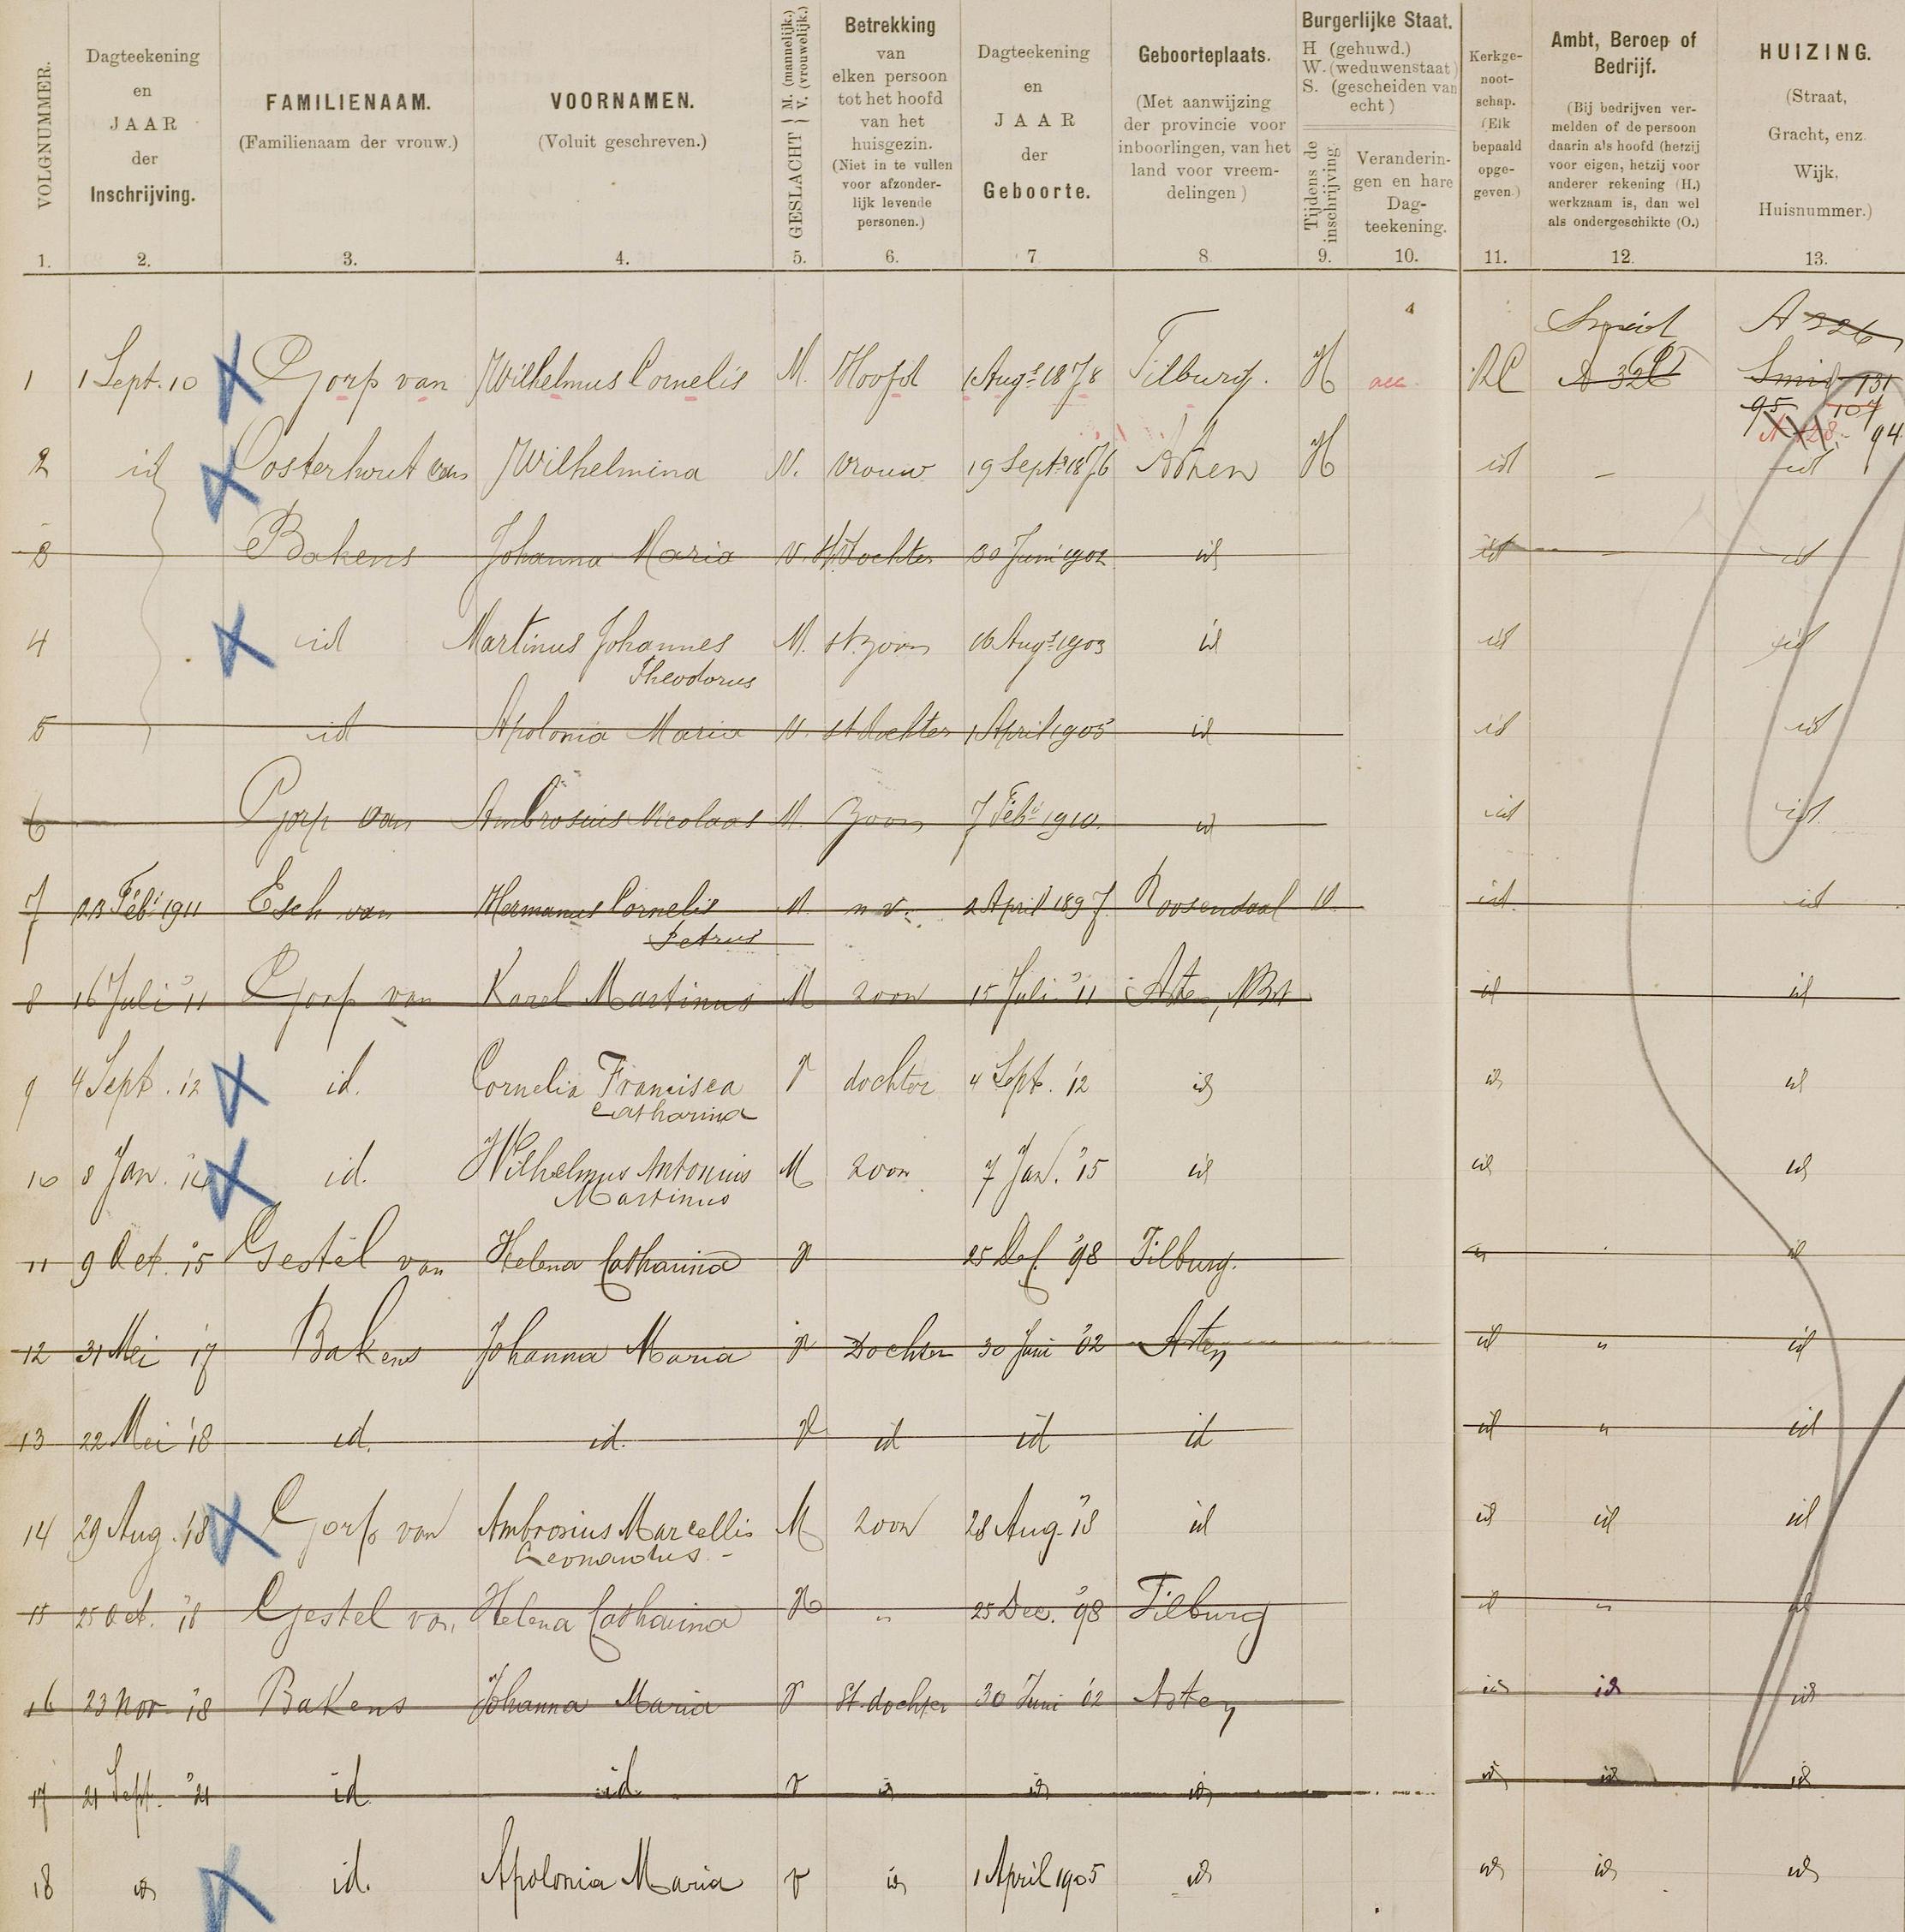 VOLGNUMMER.
Dagteekening
en
JAAR
der
Inschrijving.
FAMILIENAAM.
(Familienaam der vrouw.)
VOORNAMEN.
(Voluit geschreven.)
GESLACHT { M. (mannelijk.) V. (vrouwelijk.)
Betrekking
van
elken persoon
tot het hoofd
van het
huisgezin.
(Niet in te vullen
voor afzonder-
lijk levende
personen.)
Dagteekening
en
JAAR
der
Geboorte.
Geboorteplaats.
(Met aanwijzing
der provincie voor
inboorlingen, van het
land voor vreem-
delingen)
Burgerlijke Staat.
H (gehuwd.)
W. (weduwenstaat)
S. (gescheiden van
echt)
Tijdens de
inschrijving.
Veranderin-
gen en hare
Dag-
teekening.
Kerkge-
noot-
schap.
(Elk
bepaald
opge-
geven.)
Ambt, Beroep of
Bedrijf.
(Bij bedrijven ver-
melden of de persoon
daarin als hoofd (hetzij
voor eigen, hetzij voor
anderer rekening (H.)
werkzaam is, dan wel
als ondergeschikte (O.)
HUIZING.
(Straat,
Gracht, enz.
Wijk,
Huisnummer.)
1. 2. 3. 4. 5. 6. 7. 8. 9. 10. 11. 12. 13.
Smid A 326
1 1 Sept. 10 Gorp van Wilhelmus Cornelis M. Hoofd 1 Aug. 1878 Tilburg. H acc. RC A 326 Smid 131
95 107
94
2 id Oosterhout van Wilhelmina V. vrouw 19 Sept. 1876 Asten H id – id
3 Bakens Johanna Maria V. St dochter 30 Juni 1902 id id – id
4 id Martinus Johannes M. st. zoon 16 Aug. 1903 id id id
Theodorus
5 id Apolonia Maria V. st dochter 1 April 1905 id id id
6 Gorp van Ambrosius Nicolaas M. zoon 7 Feb. 1910. id id id
7 23 Feb. 1911 Esch van Hermanus Cornelis M. n.v. 2 April 1897 Roosendaal id. id
Petrus
8 16 Juli '11 Gorp van Karel Martinus M zoon 15 Juli '11 Asten, NBt id id
9 4 Sept. '12 id. Cornelia Francisca V dochter 4 Sept. '12 id id id
Catharina
10 8 Jan. id. Wilhelmus Antonius M zoon 7 Jan. '15 id id id
Martinus
11 9 Oct. '15 Gestel van Helena Catharina V 25 Dec. '98 Tilburg. id
12 31 Mei '17 Bakens Johanna Maria V Dochter 30 Juni '02 Asten id " id
13 22 Mei '18 id. id. V id id id id " id
14 29 Aug. '18 Gorp van Ambrosius Marcellis M zoon 28 Aug. '18 id id id id
Leonardus –
15 25 Oct. '18 Gestel van Helena Catharina V " 25 Dec. '98 Tilburg id " id
16 23 Nov '18 Bakens Johanna Maria V St. dochter 30 Juni '02 Asten id id id
17 21 Sept. '21 id id V id id id id id id
18 id id. Apolonia Maria V id 1 April 1905 id id id id